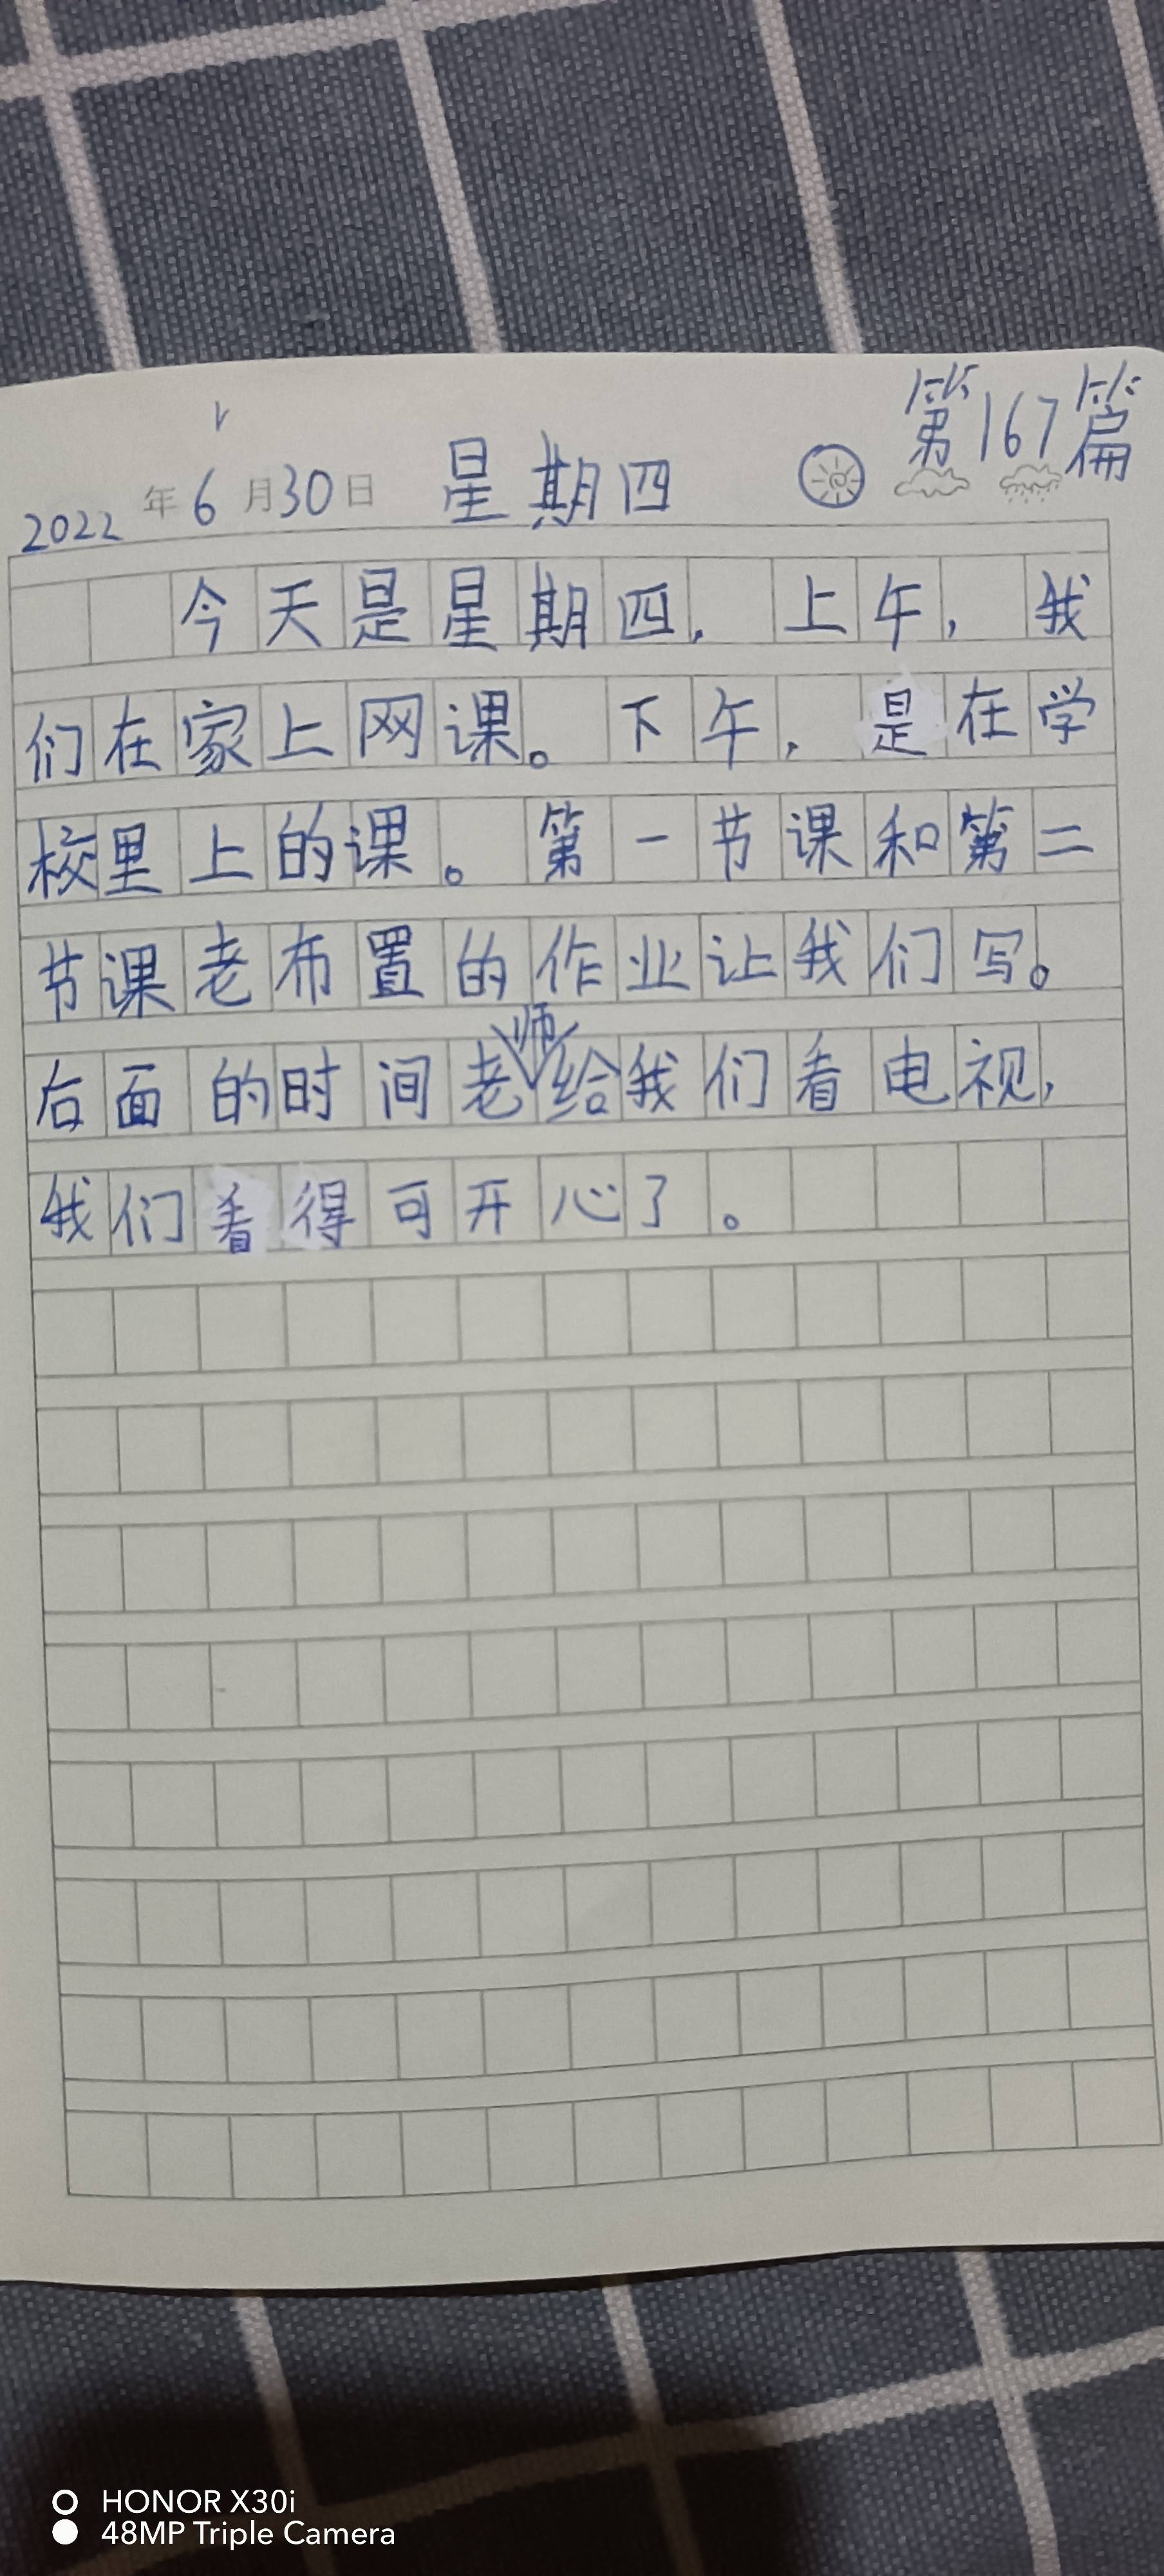 第167篇
2022年6月30日 星期四
今天是星期四，上午，我
们在家上网课。下午，是在学
校里上的课。第一节课和第二
节课老布置的作业让我们写。
后面的时间老师给我们看电视，
我们看得可开心了。
HONOR X30i
48MP Triple Camera